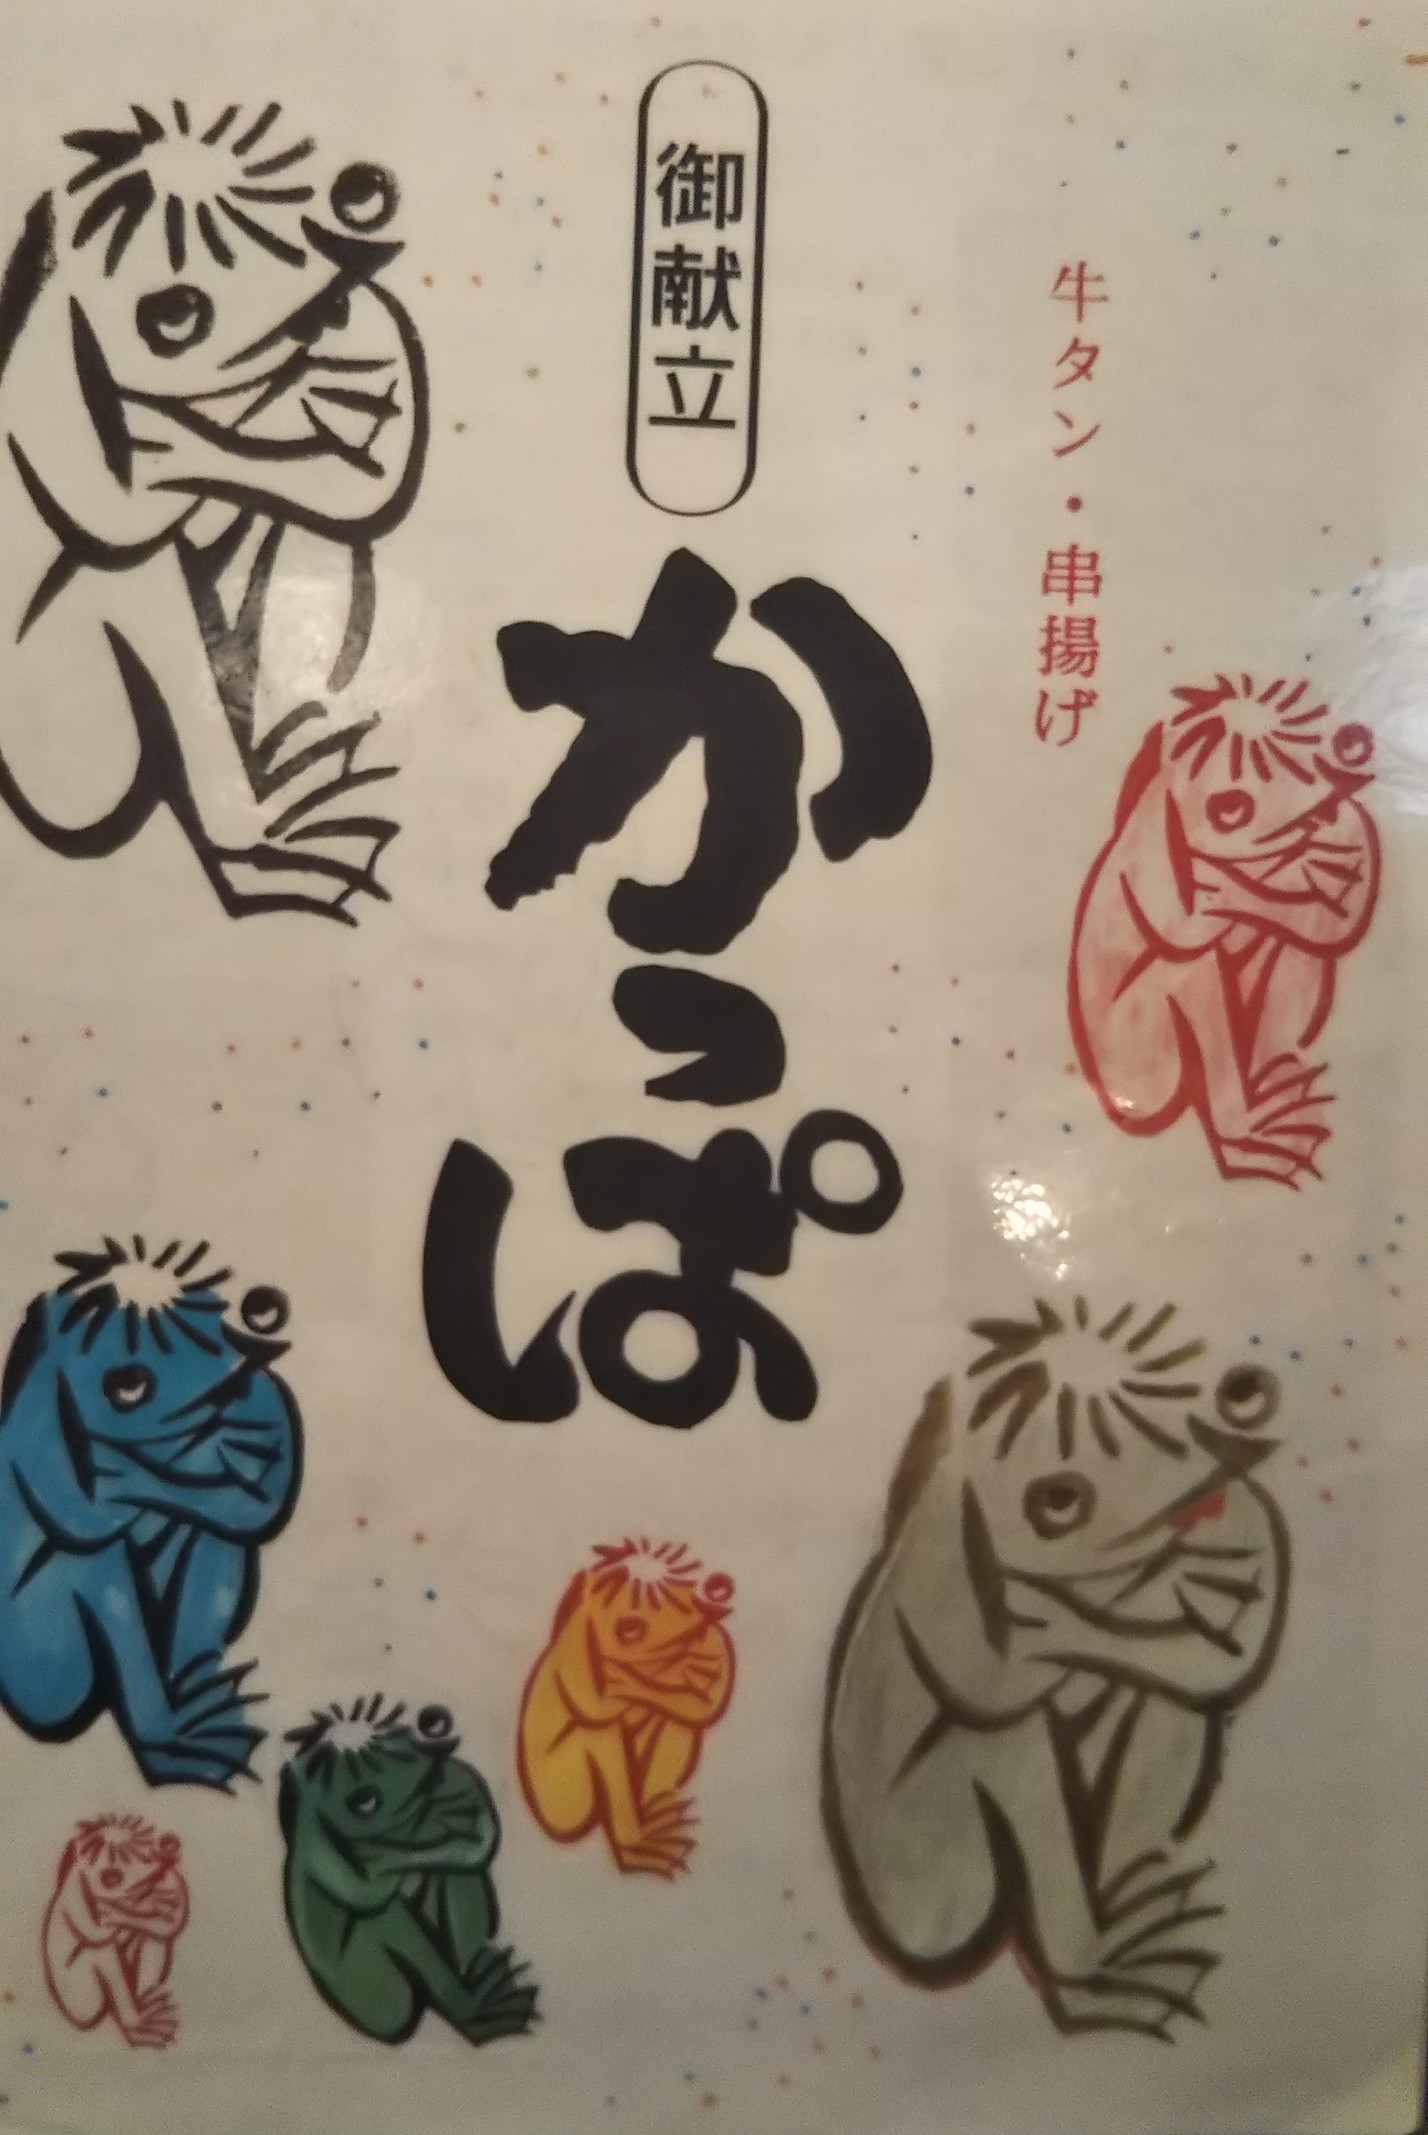 牛タン・串揚げ
御献立
かっぱ